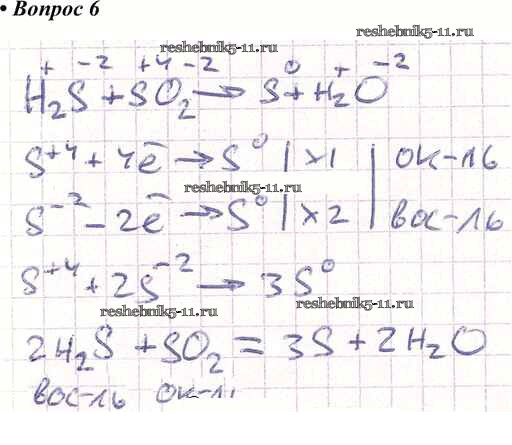 • Вопрос 6
reshebnik5-11.ru
reshebnik5-11.ru
+ -2 +4 -2 0 + -2
H₂S + SO₂ → S + H₂O
S⁺⁴ + 4ē → S⁰ | ×1 | ок-ль
reshebnik5-11.ru
S⁻² - 2ē → S⁰ | ×2 | вос-ль
S⁺⁴ + 2S⁻² → 3S⁰
reshebnik5-11.ru
reshebnik5-11.ru
2H₂S + SO₂ = 3S + 2H₂O
вос-ль ок-ль